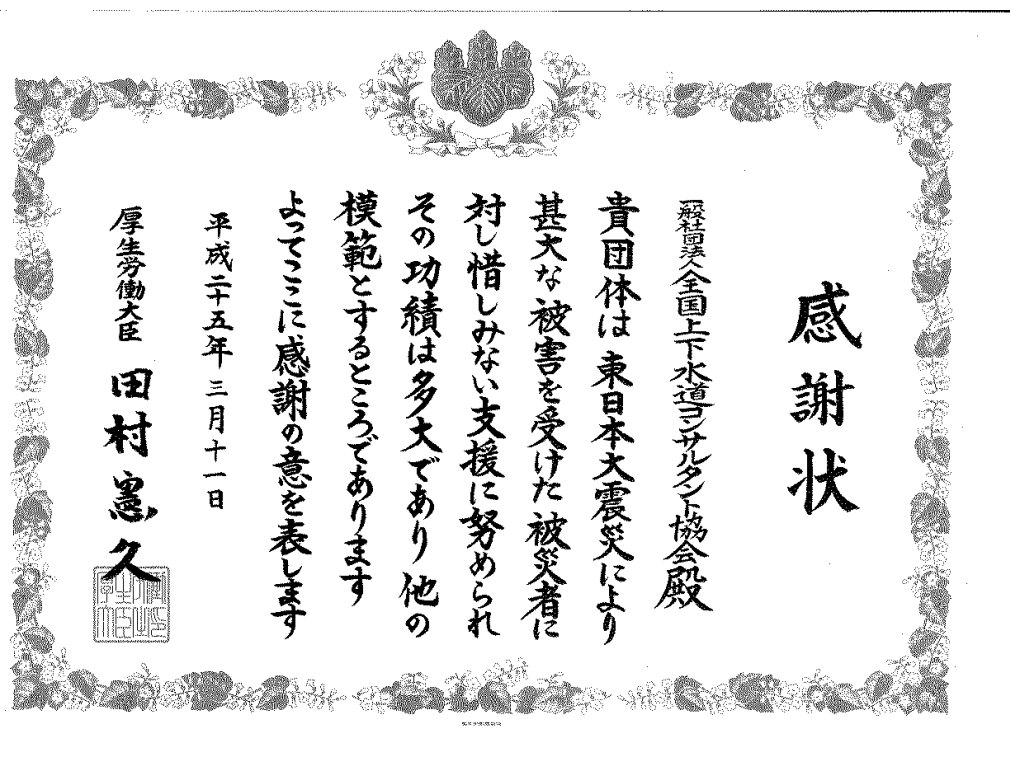 感謝状
一般社団法人全国上下水道コンサルタント協会殿
貴団体は東日本大震災により
甚大な被害を受けた被災者に
対し惜しみない支援に努められ
その功績は多大であり他の
模範とするところであります
よってここに感謝の意を表します
平成二十五年三月十一日
厚生労働大臣 田村憲久